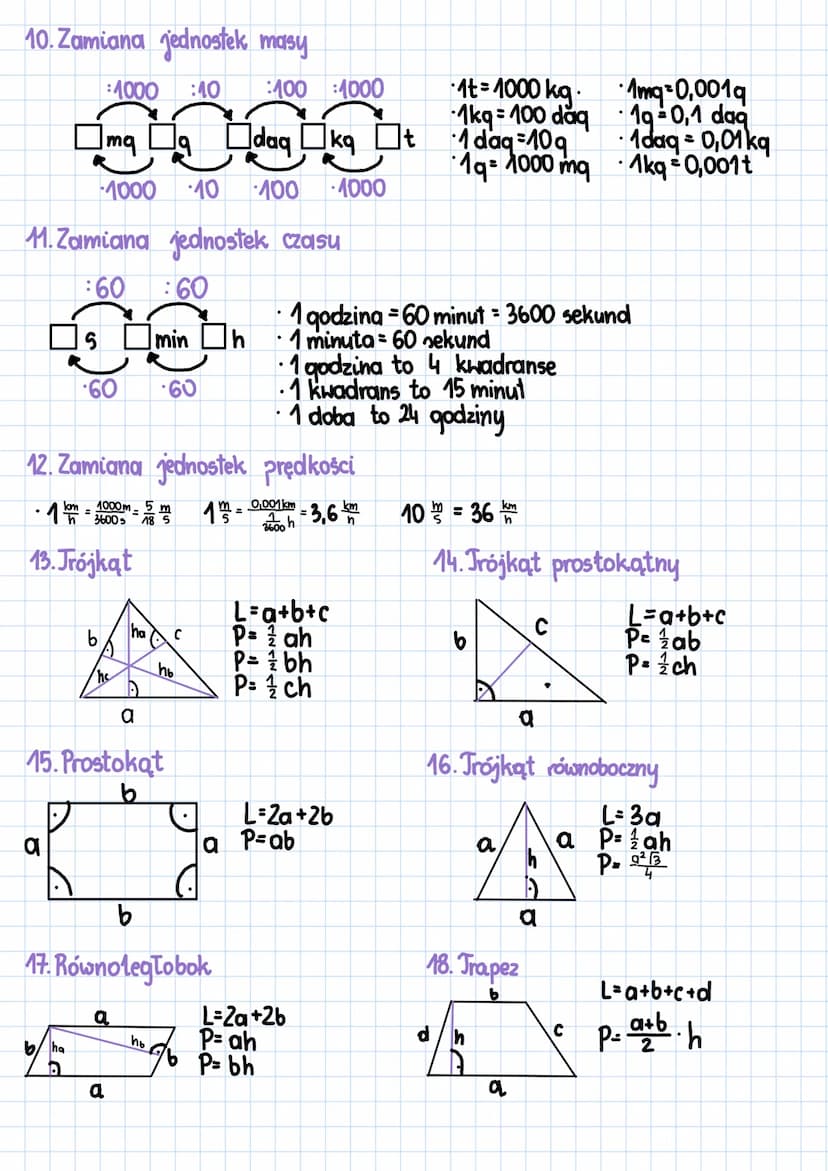 10. Zamiana jednostek masy
:1000 :10 :100 :1000
□mg □g □dag □kg □t
·1000 ·10 ·100 ·1000
·1t=1000 kg·
·1kg=100 dag
·1 dag=10g
·1g=1000 mg
·1mg=0,001g
·1g=0,1 dag
·1dag=0,01kg
·1kg=0,001t
11. Zamiana jednostek czasu
:60 :60
□s □min □h
·60 ·60
·1 godzina=60 minut=3600 sekund
·1 minuta=60 sekund
·1 godzina to 4 kwadranse
·1 kwadrans to 15 minut
·1 doba to 24 godziny
12. Zamiana jednostek prędkości
·1 km/h = 1000m/3600s = 5/18 m/s 1 m/s = 0,001km/(1/3600 h) = 3,6 km/h 10 m/s = 36 km/h
13. Trójkąt
b ha c
hc hb
a
L=a+b+c
P=1/2 ah
P=1/2 bh
P=1/2 ch
14. Trójkąt prostokątny
b c
a
L=a+b+c
P=1/2 ab
P=1/2 ch
15. Prostokąt
b
a a
b
L=2a+2b
P=ab
16. Trójkąt równoboczny
a a
h
a
L=3a
P=1/2 ah
P=a²√3/4
17. Równoległobok
a
b ha hb b
a
L=2a+2b
P=ah
P=bh
18. Trapez
b
d h c
a
L=a+b+c+d
P=a+b/2·h